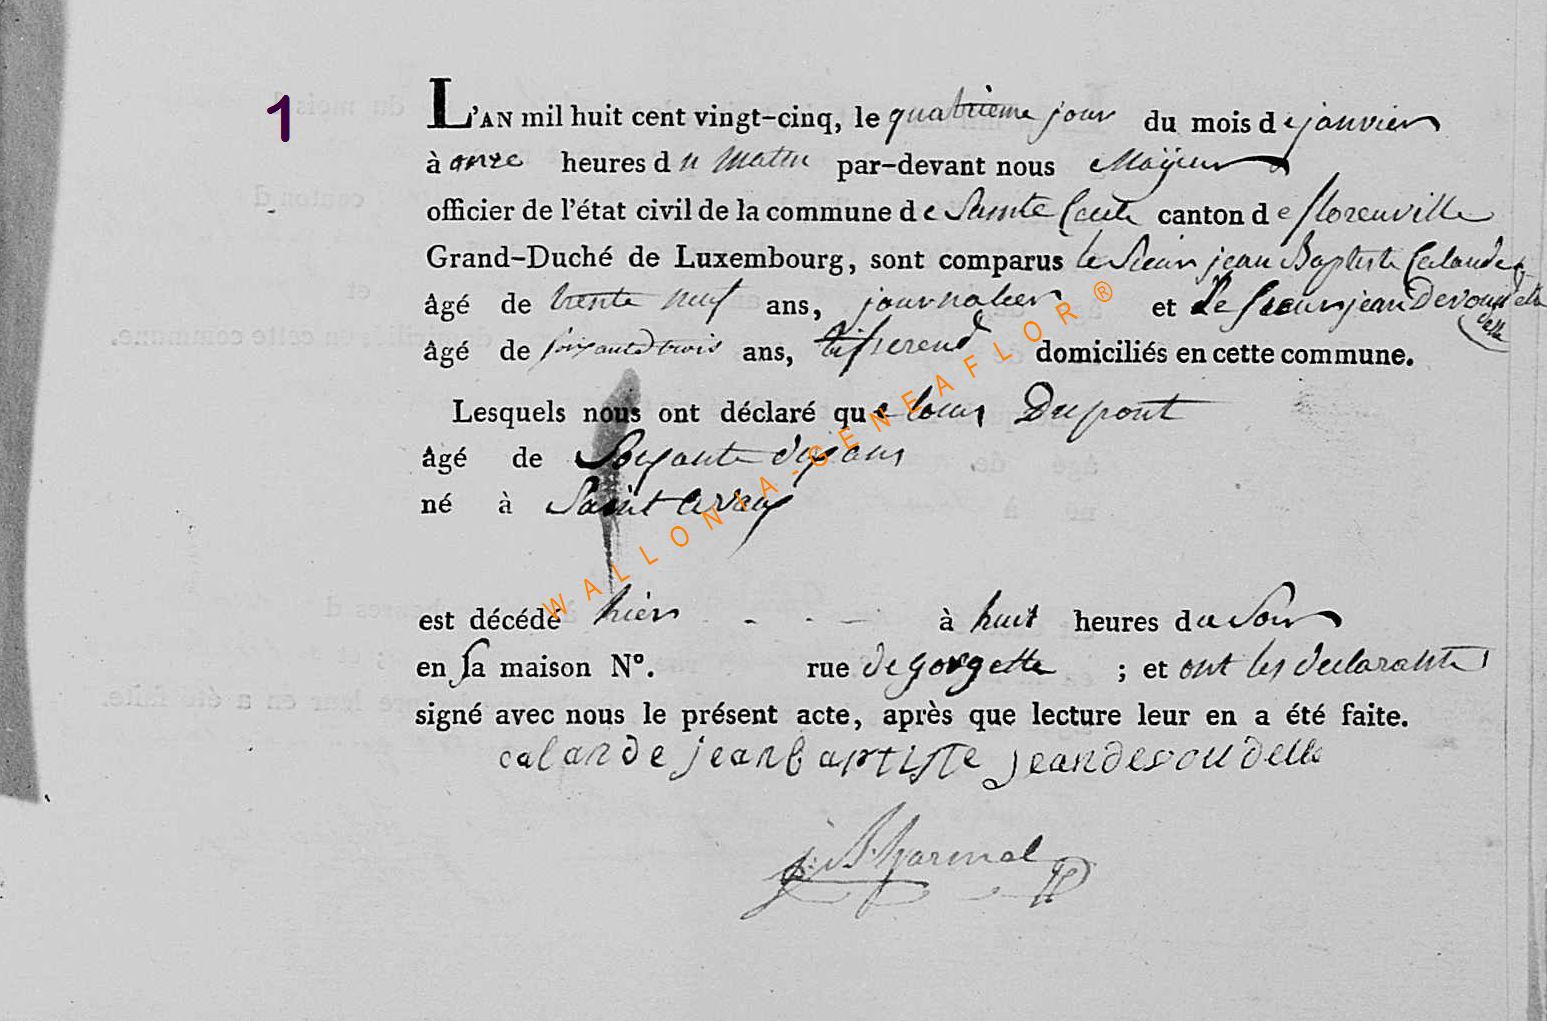 1
L'AN mil huit cent vingt-cinq, le quatrième jour du mois de janvier
à onze heures du matin par-devant nous Maÿeur
officier de l'état civil de la commune de Sainte Cecile canton de florenville
Grand-Duché de Luxembourg, sont comparus le Sieur jean Baptiste Calande
âgé de trente neuf ans, journalier et le sieur jean Devoudelle
delle
âgé de soixante trois ans, tisserend domiciliés en cette commune.
Lesquels nous ont déclaré que louis Dupont
âgé de Soixante dix ans
né à Saint
est décédé hier à huit heures du Soir
en Sa maison N°. rue de gorgette ; et ont les declarants
signé avec nous le présent acte, après que lecture leur en a été faite.
calande jean baptiste jean devoudelle
WALLONIA-GENEAFLOR®